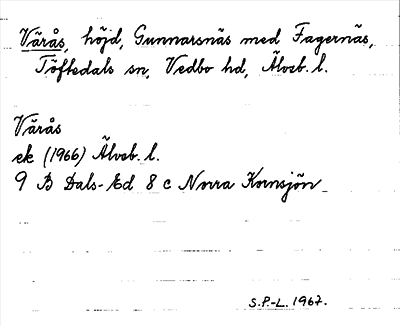 Vårås, höjd, Gunnarsnäs med Fagernäs,
Töftedals sn, Vedbo hd, Älvsb. l.
Vårås
ek (1966) Älvsb. l.
9 B Dals-Ed 8 c Norra Kornsjön
S.P.-L. 1967.